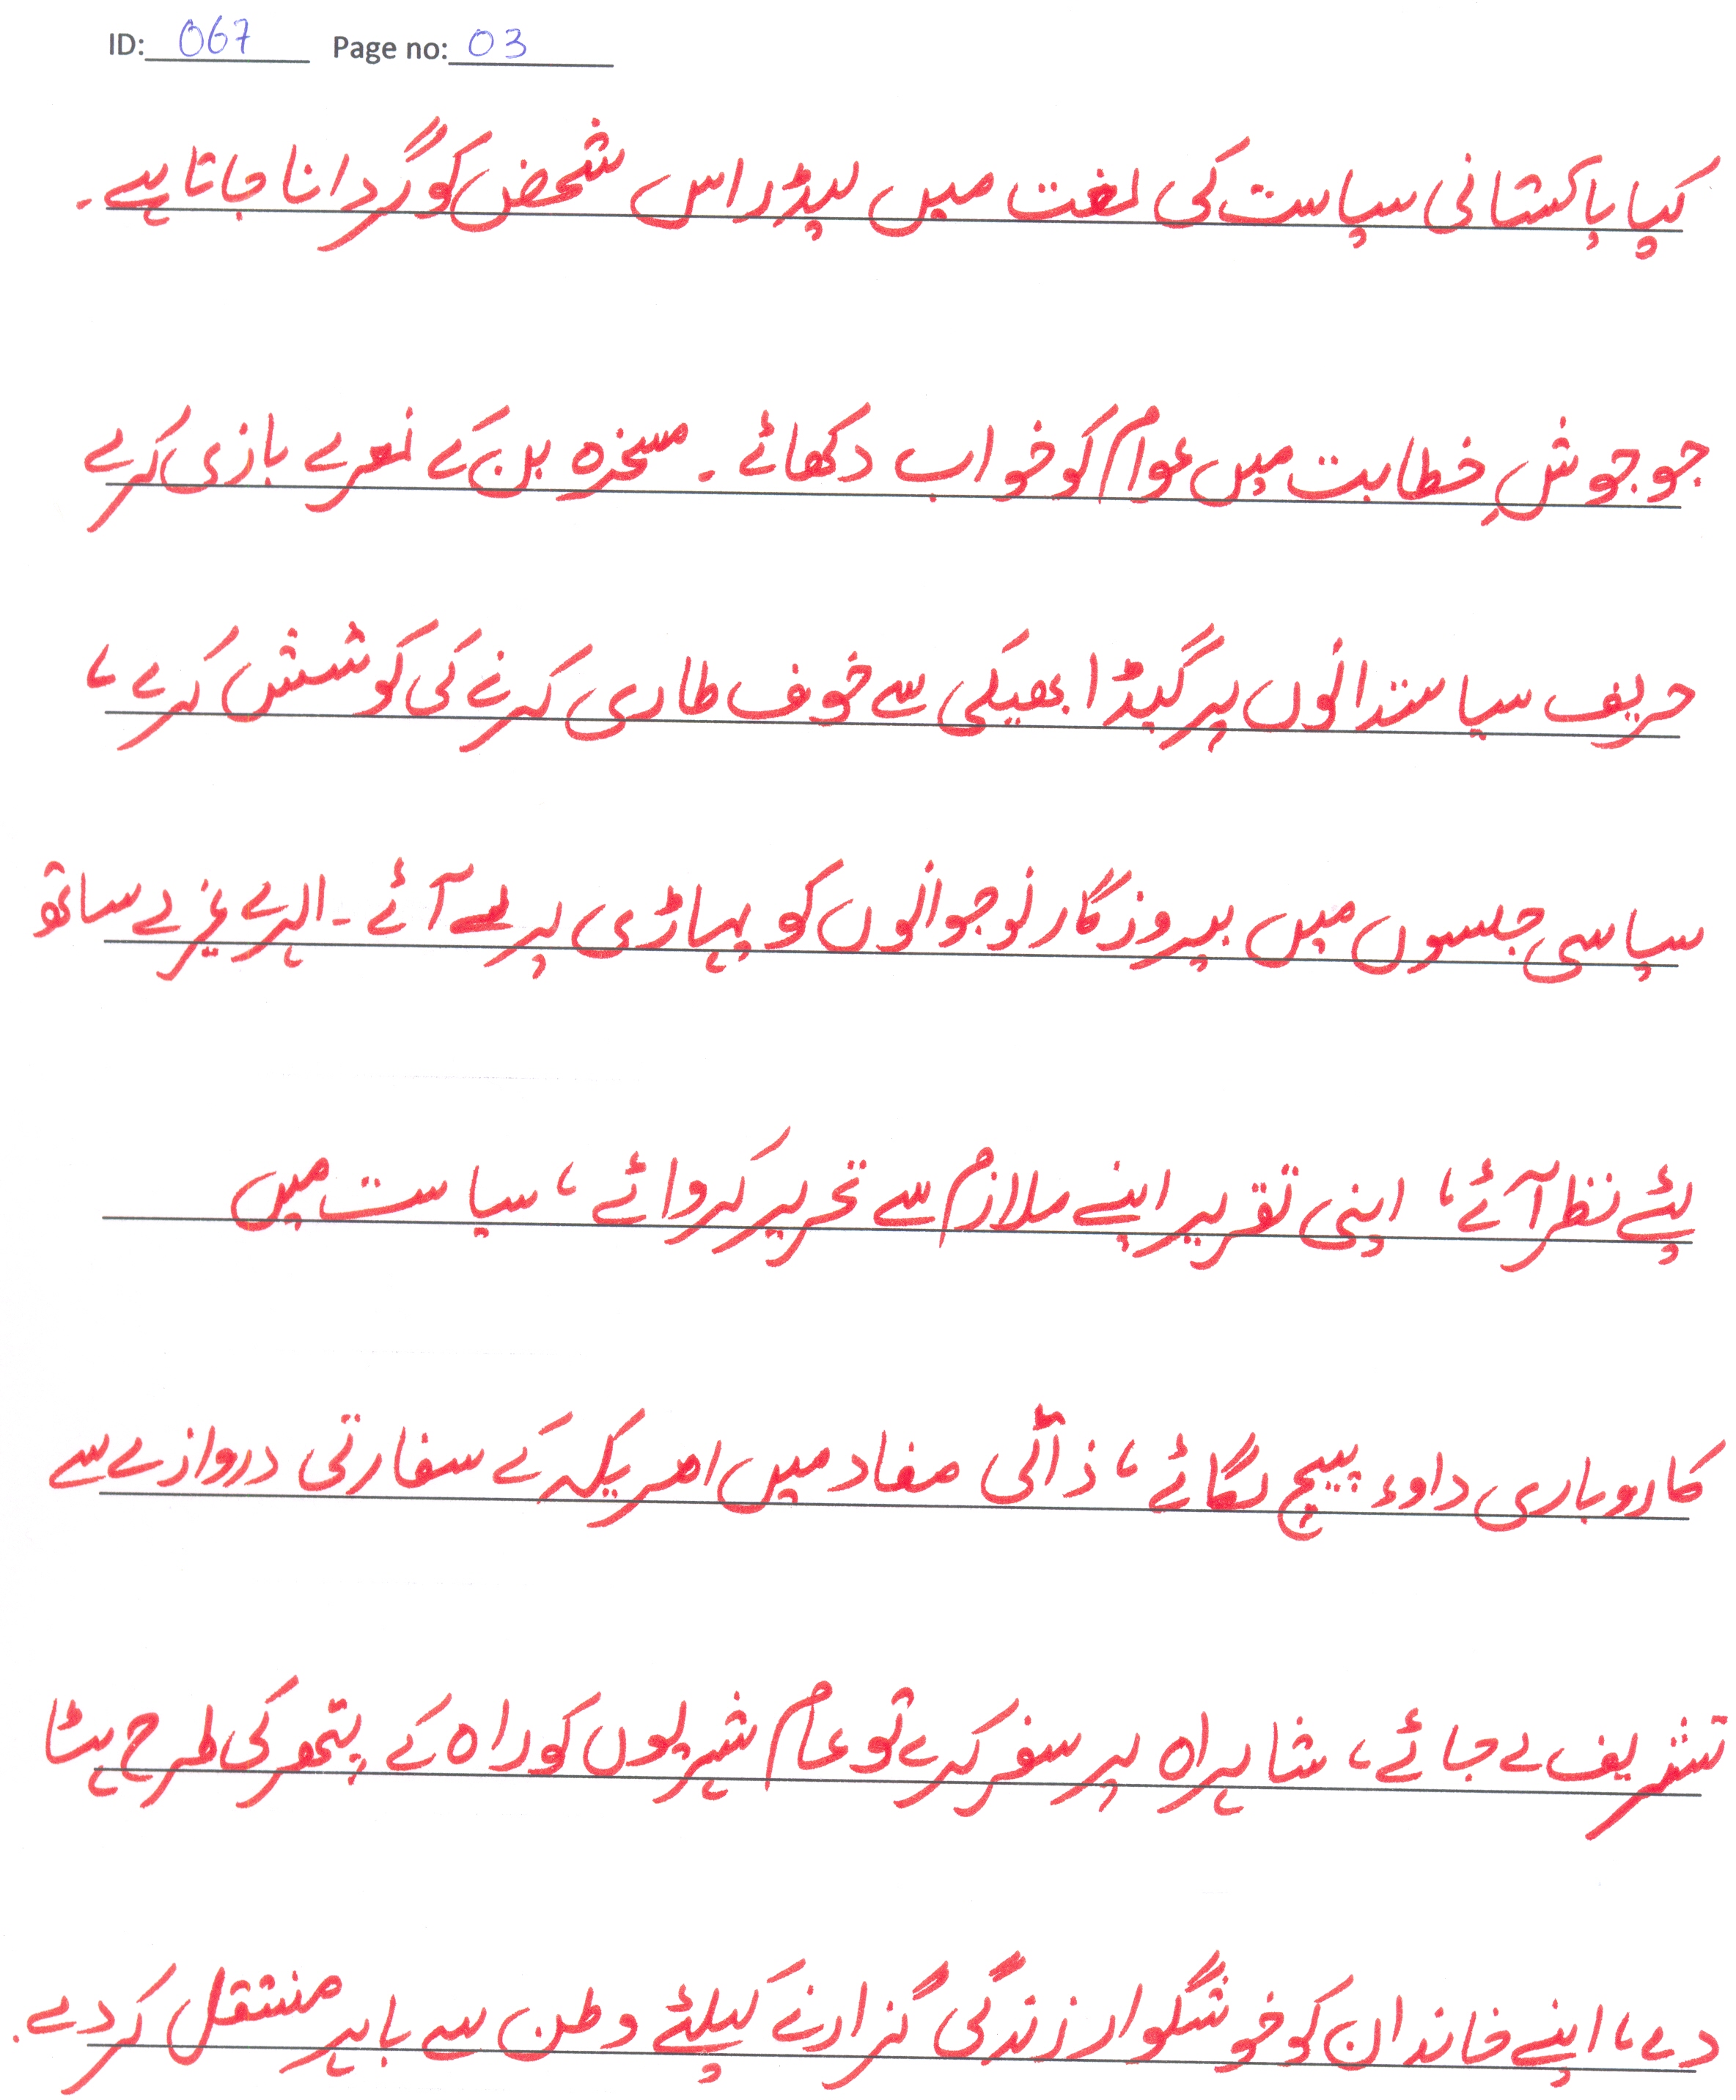 ID: 067 Page no: 03
کیا پاکستانی سیاست کی لغت میں لیڈر اس شخض کو گردانا جاتا ہے۔
جو جوشِ خطابت میں عوام کو خواب دکھائے۔ مسخرہ بن کے نعرے بازی کرے
حریف سیاستدانوں پر گیڈا بھبکی سے خوف طاری کرنے کی کوشش کرے،
سیاسی جلسوں میں بیروزگار نوجوانوں کو پہاڑی پر لے آئے۔ ایرے غیرے ساتھ
لئے نظر آئے، اپنی تقریر اپنے ملازم سے تحریر کروائے، سیاست میں
کاروباری داوء پیچ لگائے، ذاتی مفاد میں امریکہ کے سفارتی دروازے سے
تشریف لے جائے، شاہراہ پر سفر کرے تو عام شہریوں کو راہ کے پتھر کی طرح ہٹا
دے، اپنے خاندان کو خوشگوار زندگی گزارنے کیلئے وطن سے باہر منتقل کر دے۔